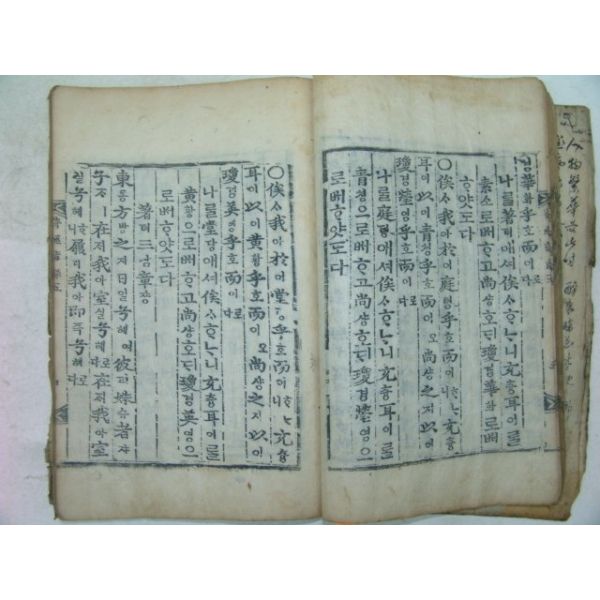 華화乎호而이로다
나를著뎌애셔俟ᄉᆞᄒᆞᄂᆞ니充츙耳이어를
素소로ᄡᅥᄒᆞ고尚샹호ᄃᆡ瓊경華화로ᄡᅥ
ᄒᆞ얏도다
○俟ᄉᆞ我아於어庭뎡乎호而이니充츙
耳이以이青쳥乎호而이오尚샹之지以이
瓊경瑩영乎호而이로다
나를庭뎡애셔俟ᄉᆞᄒᆞᄂᆞ니充츙耳이어를
青쳥으로ᄡᅥᄒᆞ고尚샹호ᄃᆡ瓊경瑩영으
로ᄡᅥᄒᆞ얏도다
○俟ᄉᆞ我아於어堂당乎호而이니充츙
耳이以이黃황乎호而이오尚샹之지以이
瓊경英영乎호而이로다
나를堂당애셔俟ᄉᆞᄒᆞᄂᆞ니充츙耳이어를
黃황으로ᄡᅥᄒᆞ고尚샹호ᄃᆡ瓊경英영으
로ᄡᅥᄒᆞ얏도다
著뎌三삼章쟝
東동方방之지日일兮혜여彼피姝슈者쟈
子ᄌᆞㅣ在ᄌᆡ我아室실兮혜로다在ᄌᆡ我아室
실兮혜ᄒᆞ니履리我아即즉兮혜로다
人物繁華